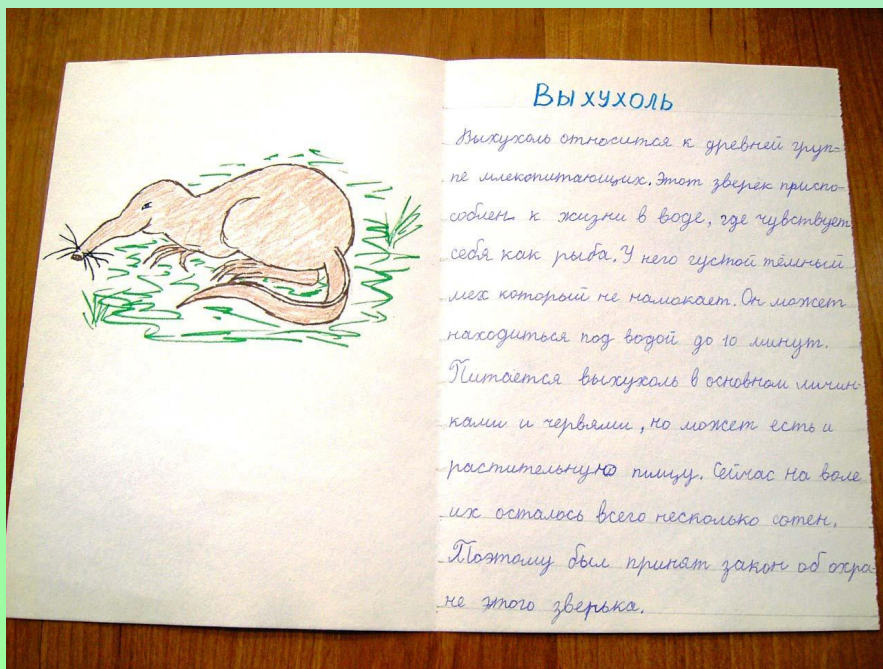 Выхухоль
Выхухоль относится к древней груп-
пе млекопитающих. Этот зверек приспо-
соблен к жизни в воде, где чувствует
себя как рыба. У него густой тёмный
мех который не намокает. Он может
находиться под водой до 10 минут.
Питается выхухоль в основном личин-
ками и червями, но может есть и
растительную пищу. Сейчас на воле
их осталось всего несколько сотен.
Поэтому был принят закон об охра-
не этого зверька.